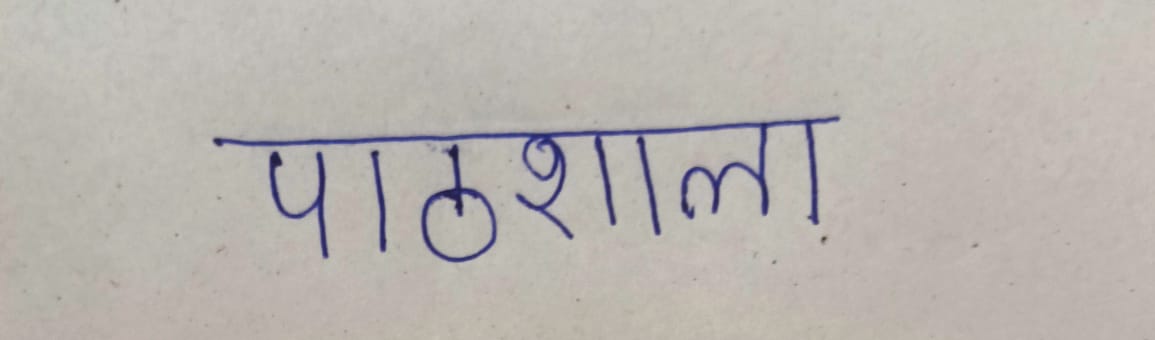 पाठशाला